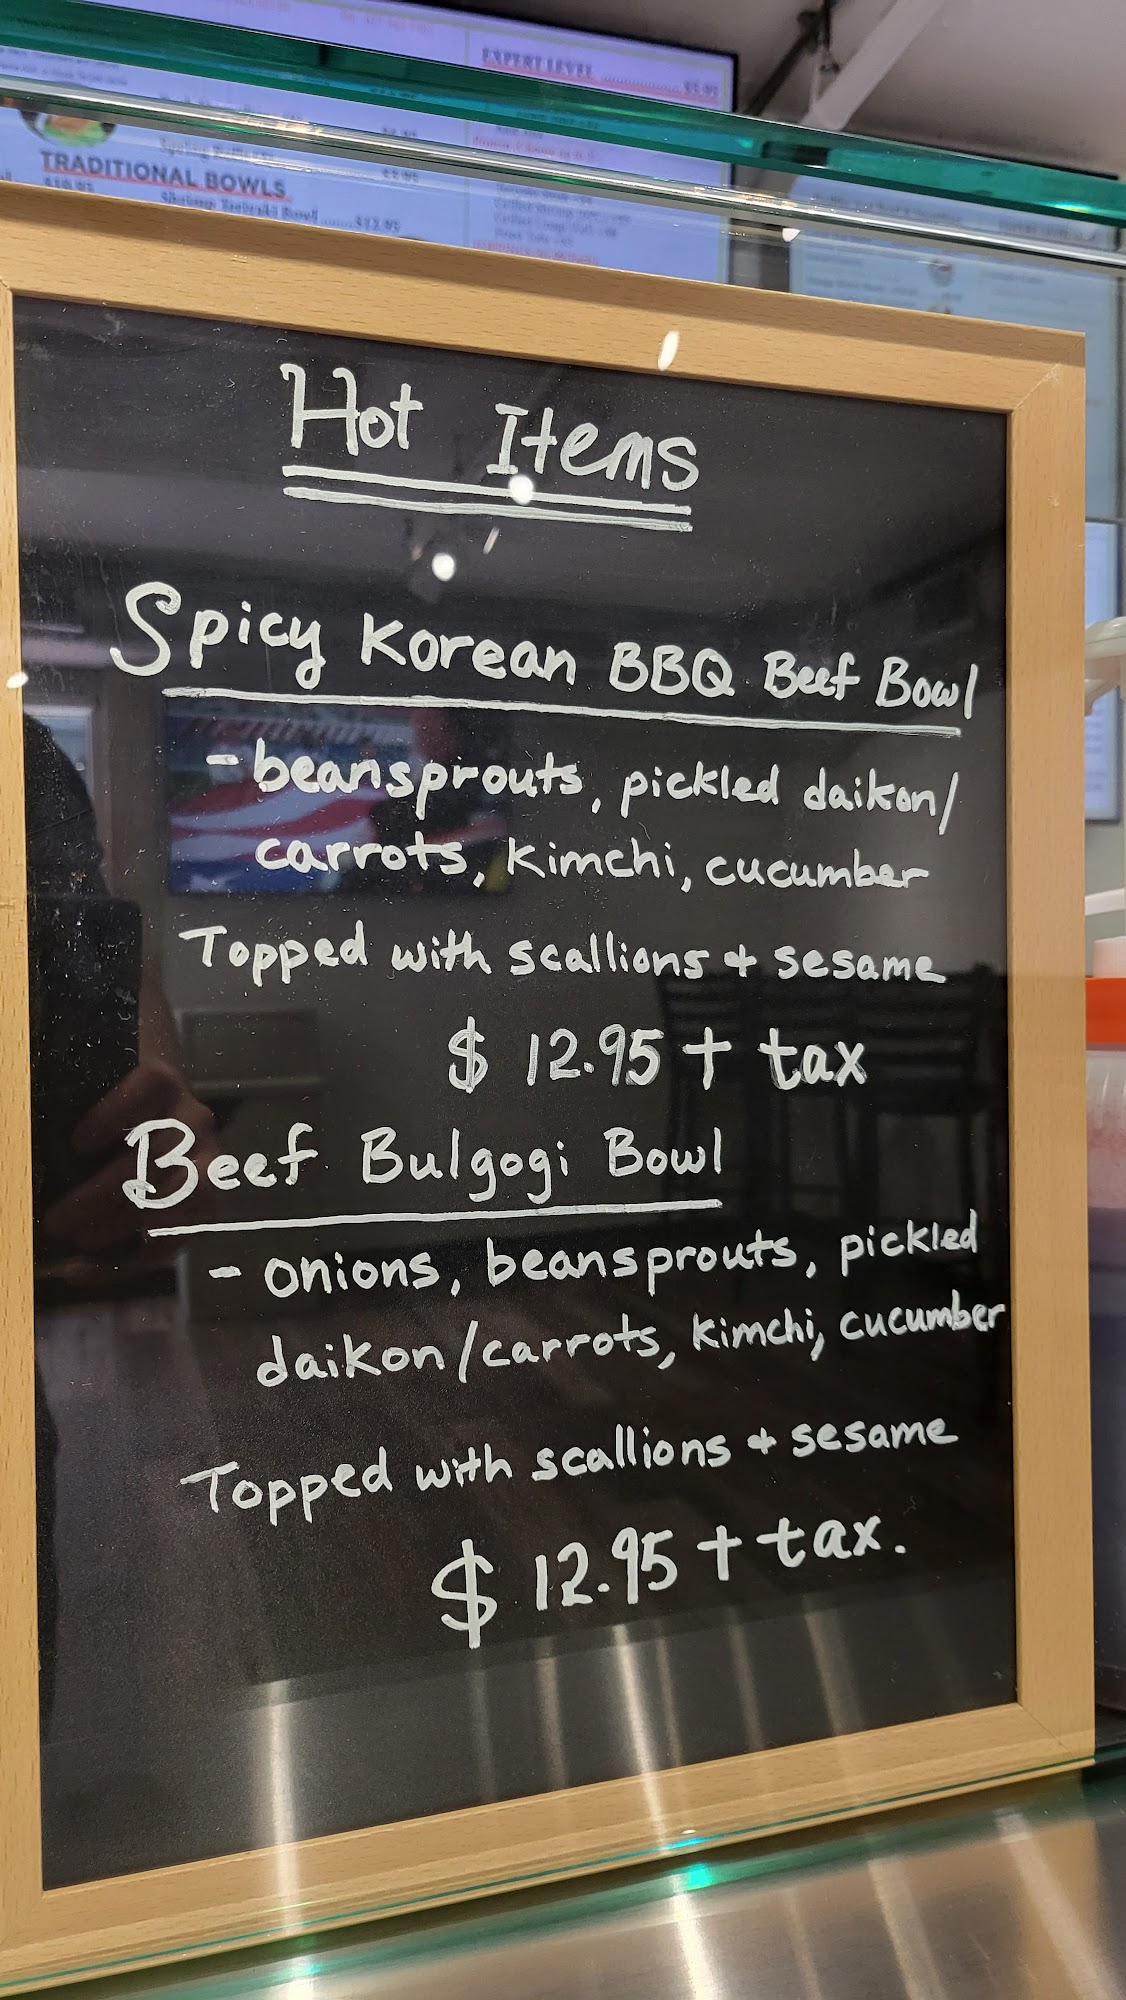 EXPERT LEVEL ............ $5.95
TRADITIONAL BOWLS
Shrimp Teriyaki Bowl ........ $12.95
Hot Items
Spicy Korean BBQ Beef Bowl
- beansprouts, pickled daikon/
carrots, kimchi, cucumber
Topped with scallions + sesame
$ 12.95 + tax
Beef Bulgogi Bowl
- onions, beansprouts, pickled
daikon/carrots, kimchi, cucumber
Topped with scallions + sesame
$ 12.95 + tax.